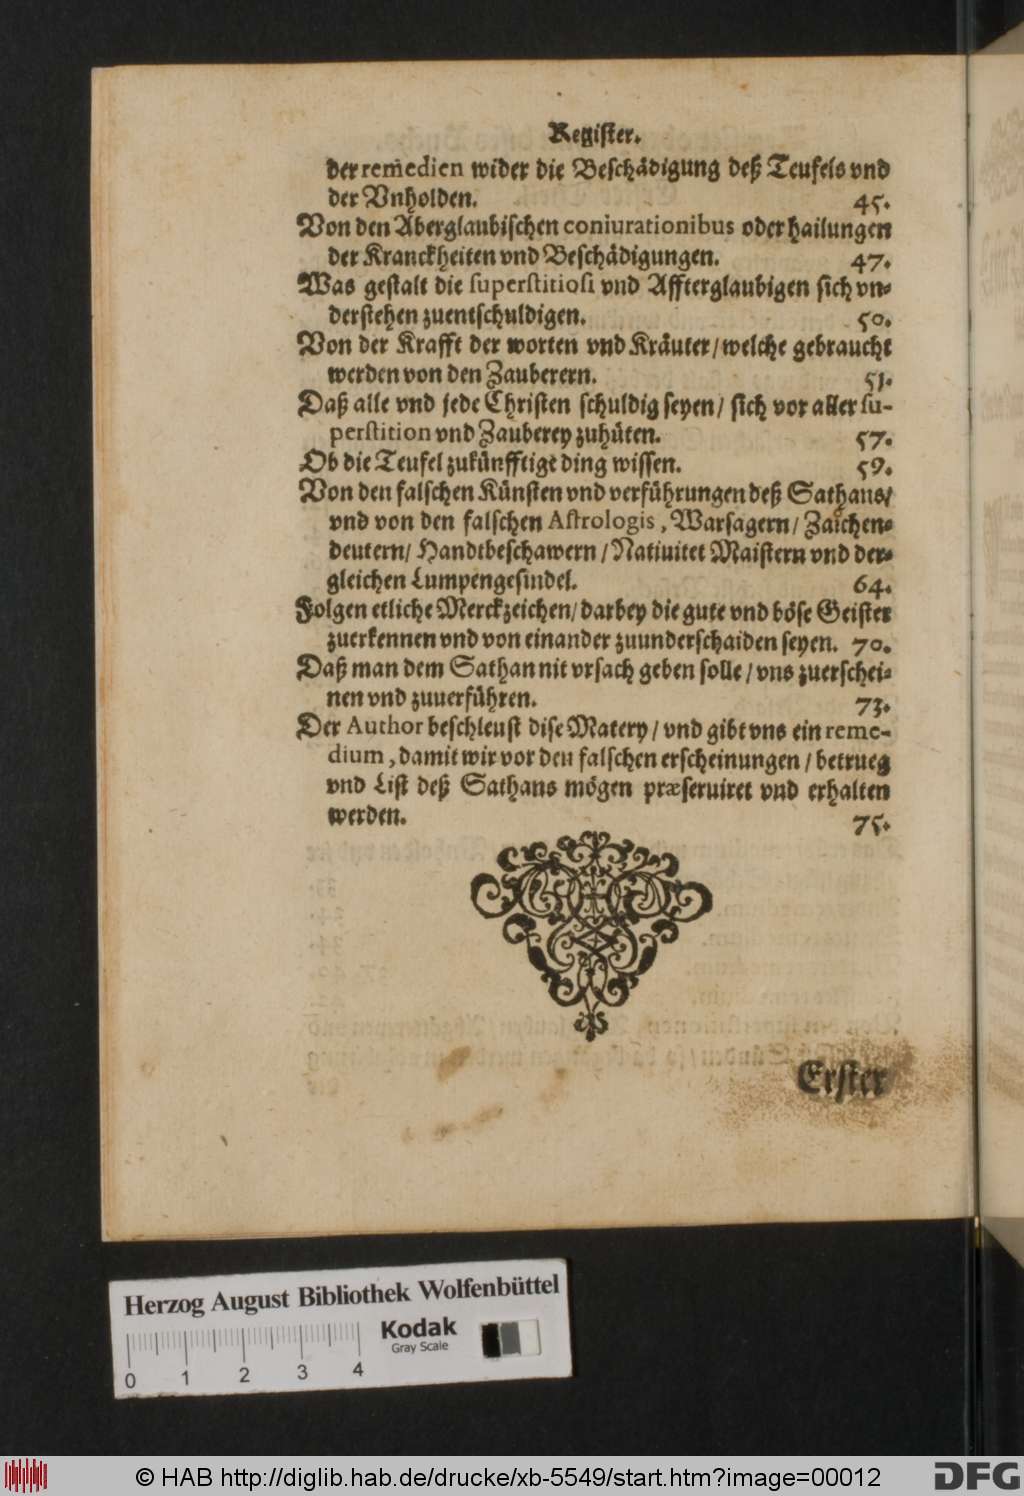 Register.
der remedien wider die Beschädigung deß Teufels vnd
der Vnholden. 45.
Von den Aberglaubischen coniurationibus oder hailungen
der Kranckheiten vnd Beschädigungen. 47.
Was gestalt die superstitiosi vnd Affterglaubigen sich vn-
derstehen zuentschuldigen. 50.
Von der Krafft der worten vnd Kräuter/ welche gebraucht
werden von den Zauberern. 51.
Daß alle vnd jede Christen schuldig seyen/ sich vor aller su-
perstition vnd Zauberey zuhüten. 57.
Ob die Teufel zukünfftige ding wissen. 59.
Von den falschen Künsten vnd verführungen deß Sathans/
vnd von den falschen Astrologis, Warsagern/ Zaichen-
deutern/ Handtbeschawern/ Natiuitet Maistern vnd der-
gleichen Lumpengesindel. 64.
Folgen etliche Merckzeichen/ darbey die gute vnd böse Geister
zuerkennen vnd von einander zuunderschaiden seyen. 70.
Daß man dem Sathan nit vrsach geben solle/ vns zuerschei-
nen vnd zuuerführen. 73.
Der Author beschleust dise Matery/ vnd gibt vns ein reme-
dium, damit wir vor den falschen erscheinungen/ betrueg
vnd List deß Sathans mögen præseruiret vnd erhalten
werden. 75.
Erster
Herzog August Bibliothek Wolfenbüttel
Kodak
Gray Scale
0 1 2 3 4
© HAB http://diglib.hab.de/drucke/xb-5549/start.htm?image=00012
DFG